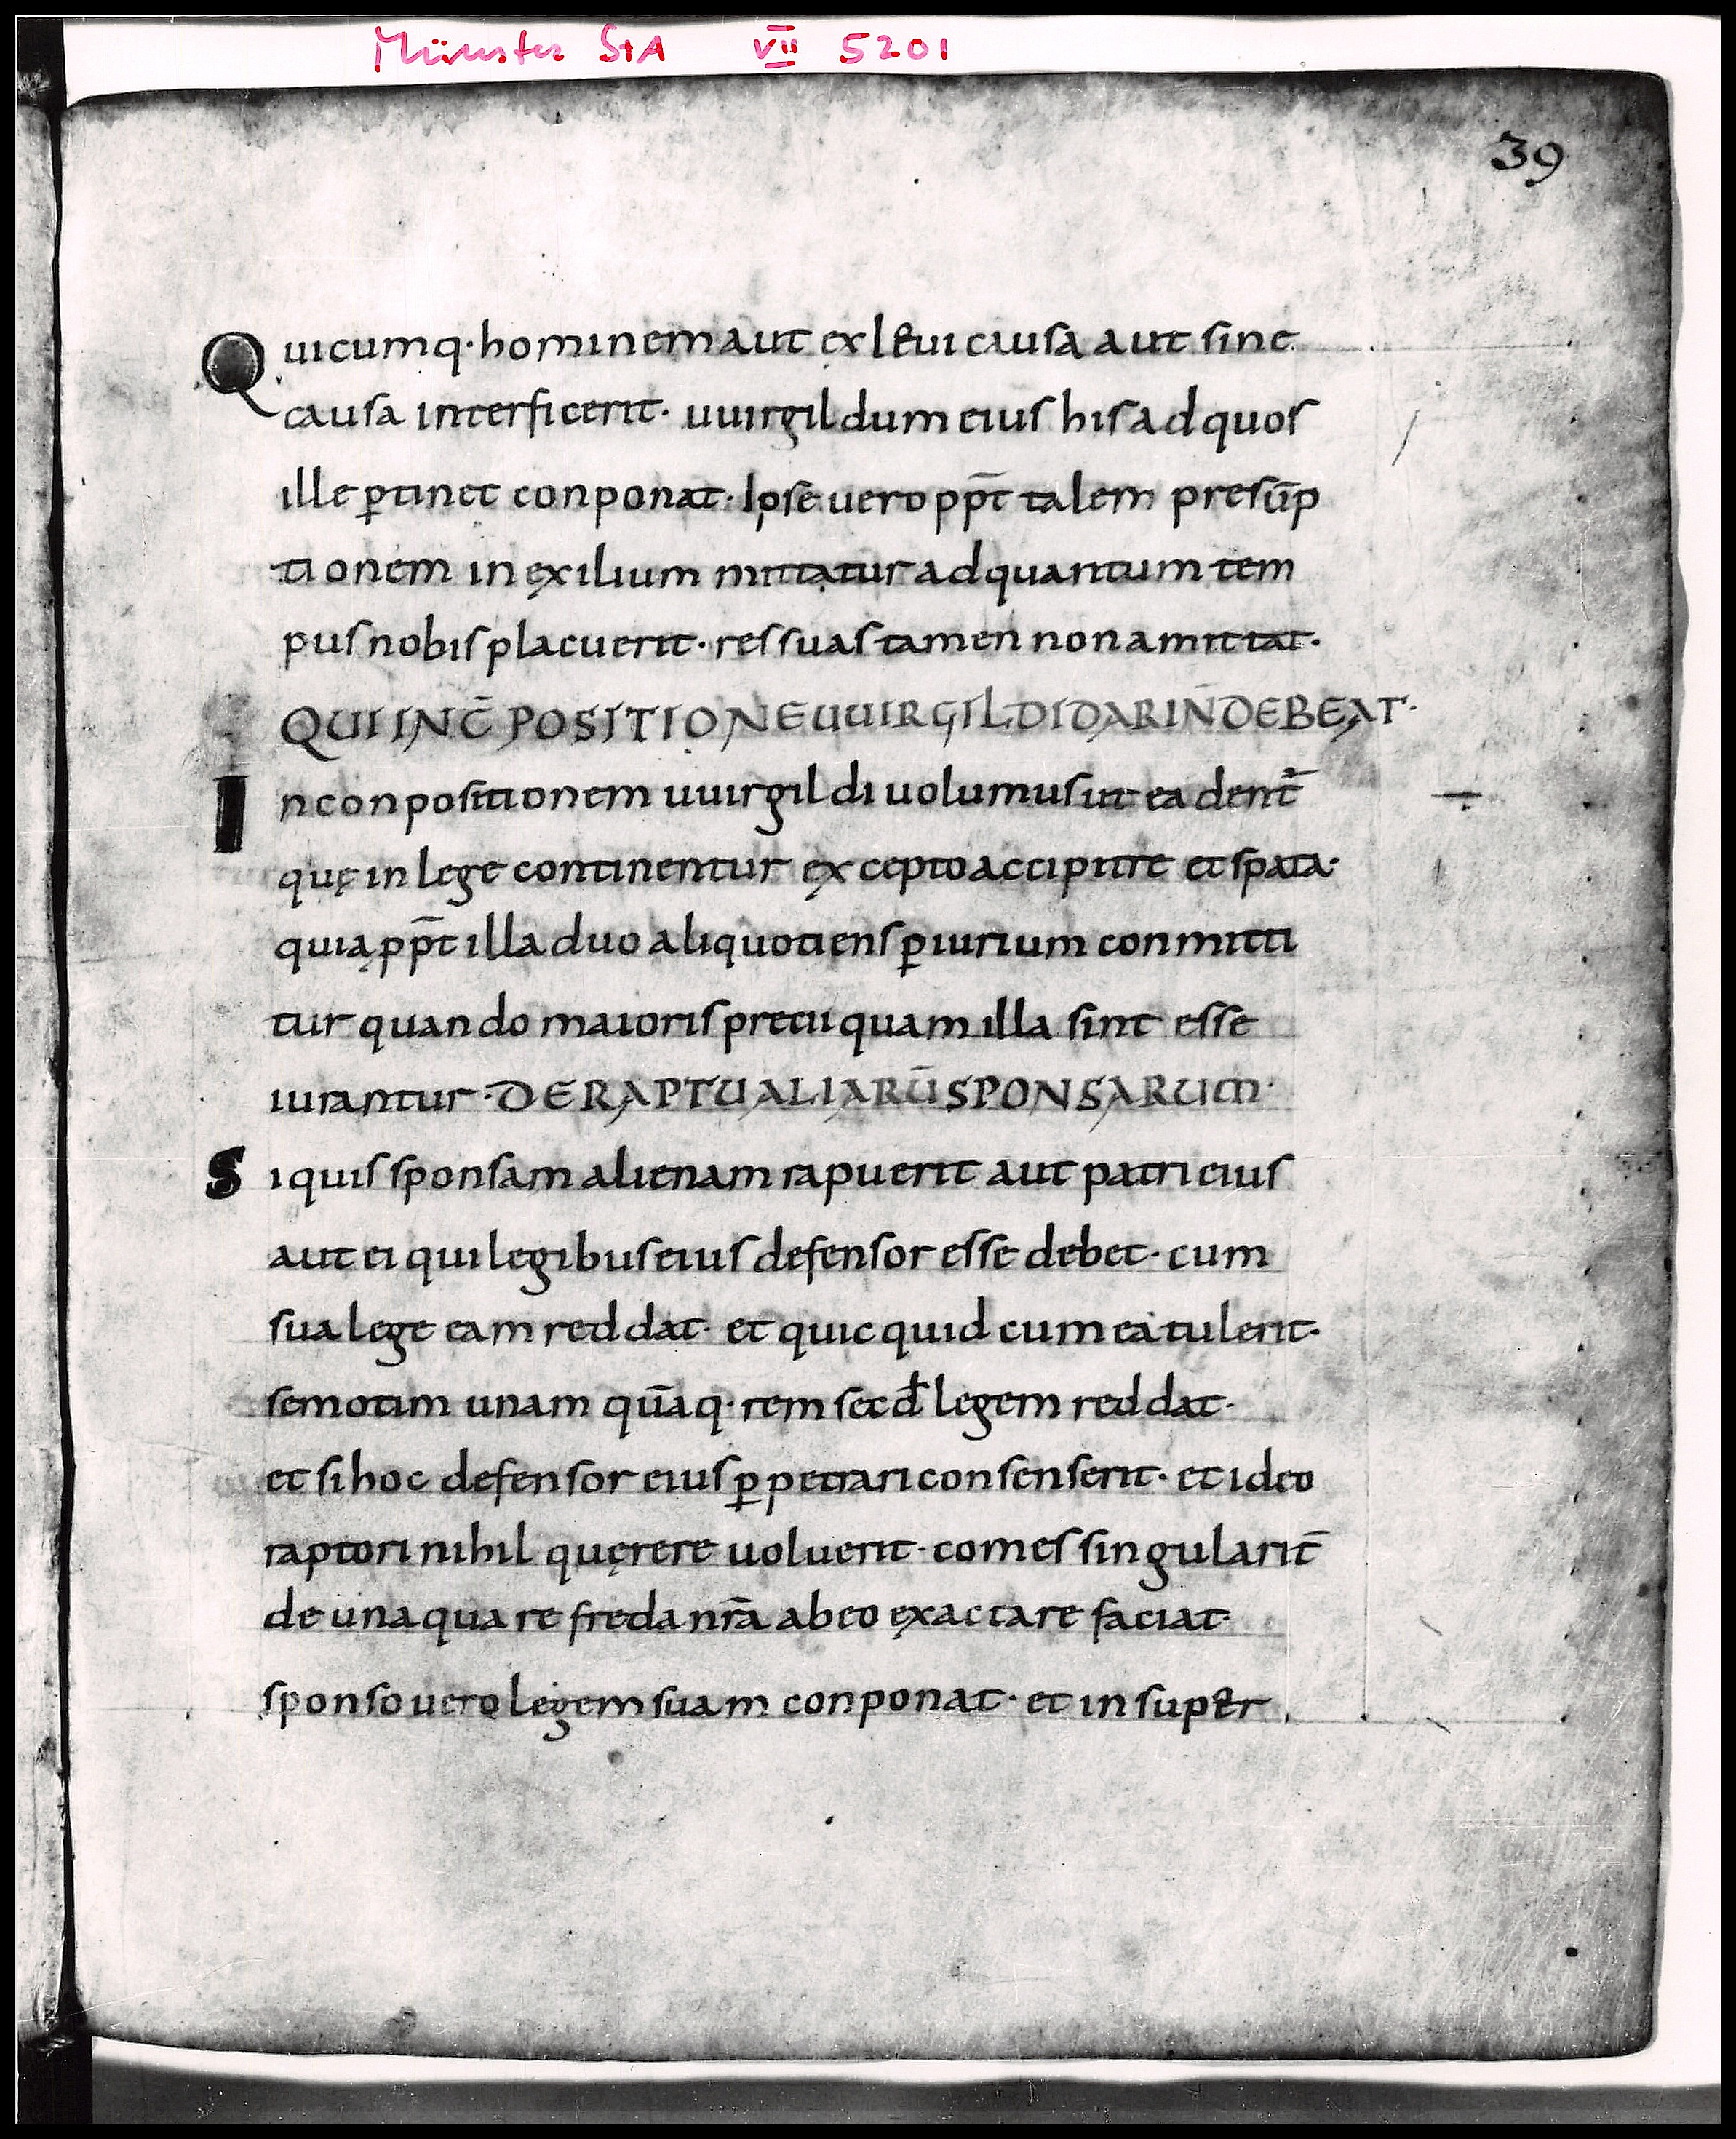 Münster StA VII 5201
39
Quicumq· hominem aut ex leui causa aut sine
causa interficerit· uuirgildum eius his ad quos
ille ꝑtinet conponat· Ipse uero pp̄t talem presūp
tionem in exilium mittatur ad quantum tem
pus nobis placuerit· res suas tamen non amittat·
QUI IN C̄POSITIONE UUIRGILDI DARI N̄ DEBEAT·
In conpositionem uuirgildi uolumus ut ea dent᷑
quę in lege continentur excepto accipitre et spata·
quia pp̄t illa duo aliquotiens ꝑiurium conmitti
tur quando maioris precii quam illa sint esse
iurantur· DE RAPTU ALIARŪ SPONSARUM·
Si quis sponsam alienam rapuerit aut patri eius
aut ei qui legibus eius defensor esse debet· cum
sua lege eam reddat· et quicquid cum ea tulerit·
semotim unam qūaq· rem secd̄ legem reddat·
et si hoc defensor eius ꝑpetrari consenserit· et ideo
raptori nihil quęrere uoluerit· comes singularit̄
de unaqua re freda nr̄a ab eo exactare faciat·
sponso uero legem suam conponat· et insuper